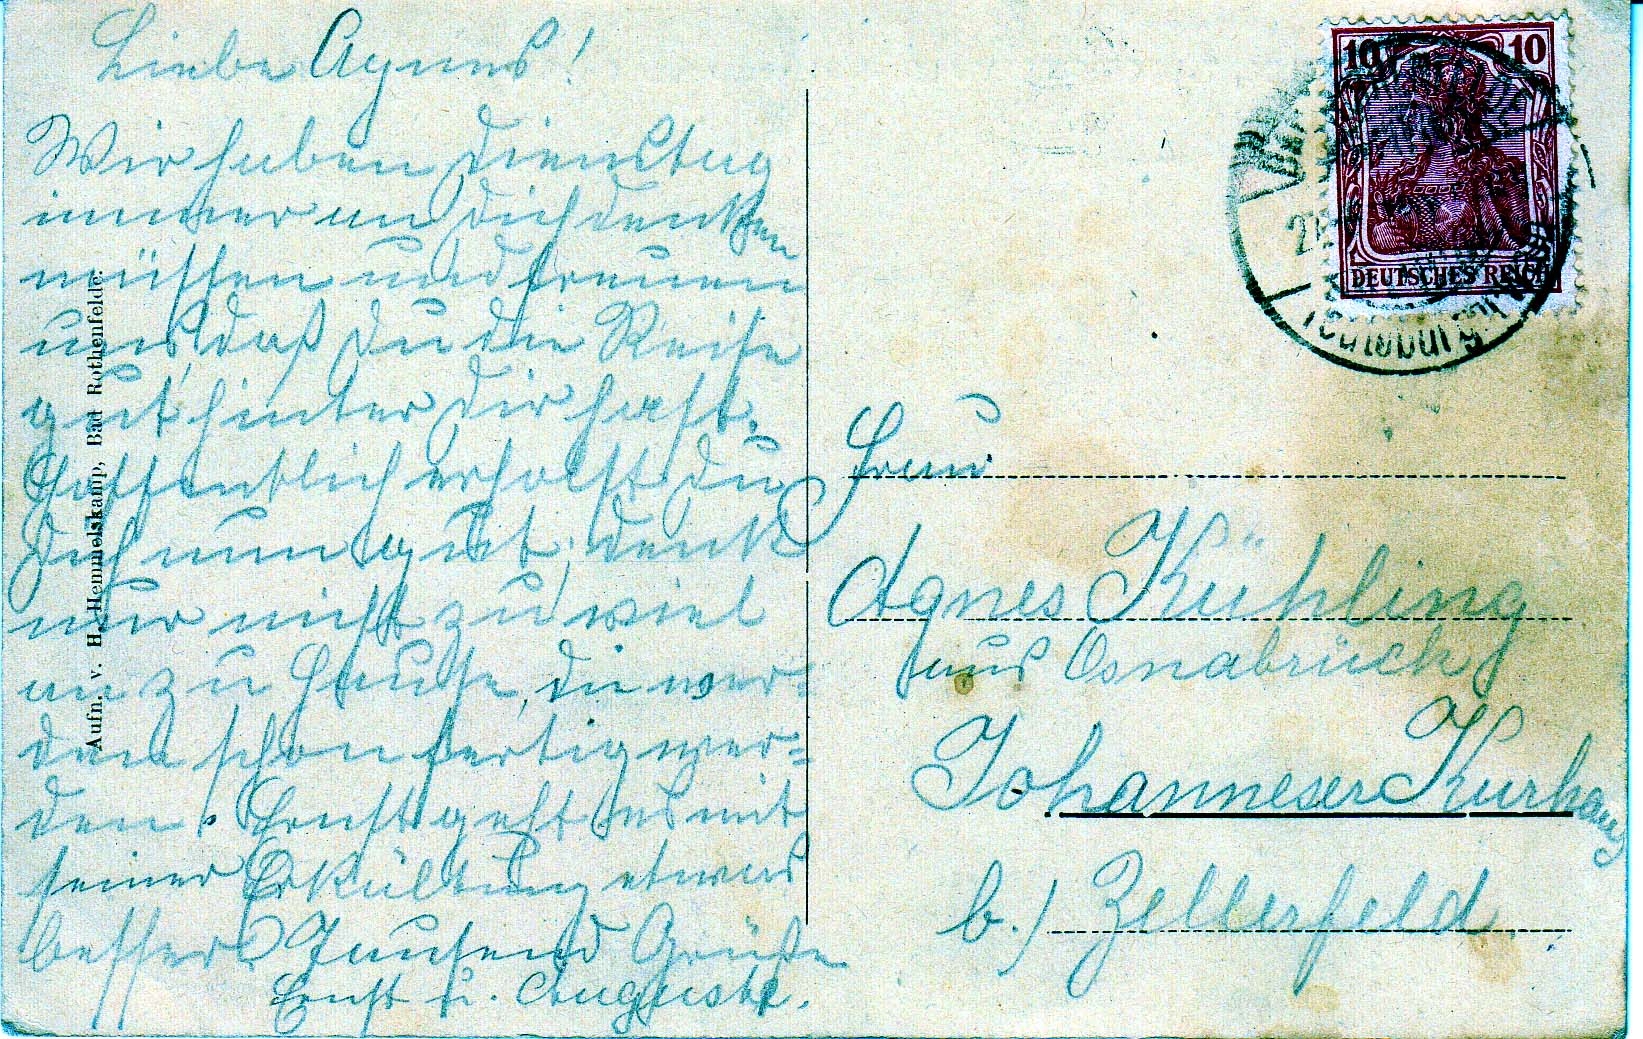 Liebe Agnes!
Wir haben Dienstag
immer an Dich denken
müssen und freuen
uns, daß Du die Reise
gut hinter Dir hast.
Hoffentlich erholst Du
Dich nun gut, denk
nur nicht zu viel
an zu Hause, die wer=
den schon fertig wer=
den. Ernst geht es mit
seiner Erkältung etwas
besser. Tausend Grüße
Ernst u. Auguste.
Aufn. v. H. Hemmelskamp, Bad Rothenfelde.
10 10
DEUTSCHES REICH
Teutoburg.
Frau
Agnes Kühling
aus Osnabrück
Johanneser Kurhaus
b./ Zellerfeld